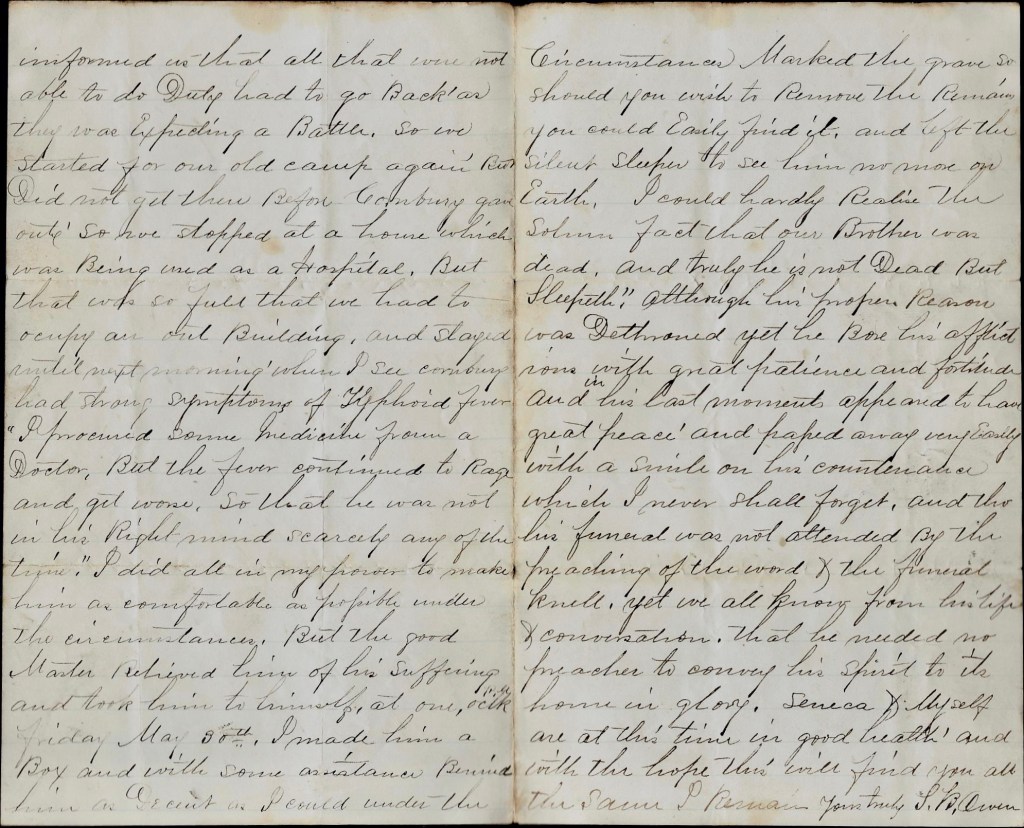 imformed us that all that were not
able to do Duty had to go Back as
they was Expecting a Battle. So we
started for our old camp again But
Did not get there Before Cornbury gave
oute So we stopped at a house which
was Being used as a Hospital. But
that was so full that we had to
ocupy an out Building, and stayed
until next morning when I see cornbury
had strong symptoms of Typhoid fever
"I procured some medicine from a
Doctor, But the fever continued to Rage
and get worse. So that he was not
in his Right mind scarcely any of the
time." I did all in my power to make
him as comfortable as possible under
the circumstances. But the good
Master Relieved him of his Suffering
and took him to himself, at one, oclk
friday May 30th. I made him a
Box and with some assistance Buried
him as Decent as I could under the
Circumstances Marked the grave so
should you wish to Remove the Remains
you could Easily find it. and left the
silent sleeper to see him no more on
Earth. I could hardly Realise the
Solumn fact that our Brother was
dead. and truly he is not Dead But
Sleepeth". although his proper Reason
was Dethroned yet he Bore his afflict
ions with great patience and fortitude
and in his last moments appeared to have
great peace and passed away very Easily
with a smile on his countenance
which I never shall forget. and tho
his funeral was not attended By the
preaching of the word & the funeral
knell. yet we all know from his life
& conversation. that he needed no
preacher to convey his spirit to its
home in glory. Seneca & Myself
are at this time in good health and
with the hope this will find you all
the same I Remain Yours truly S. B. Owen